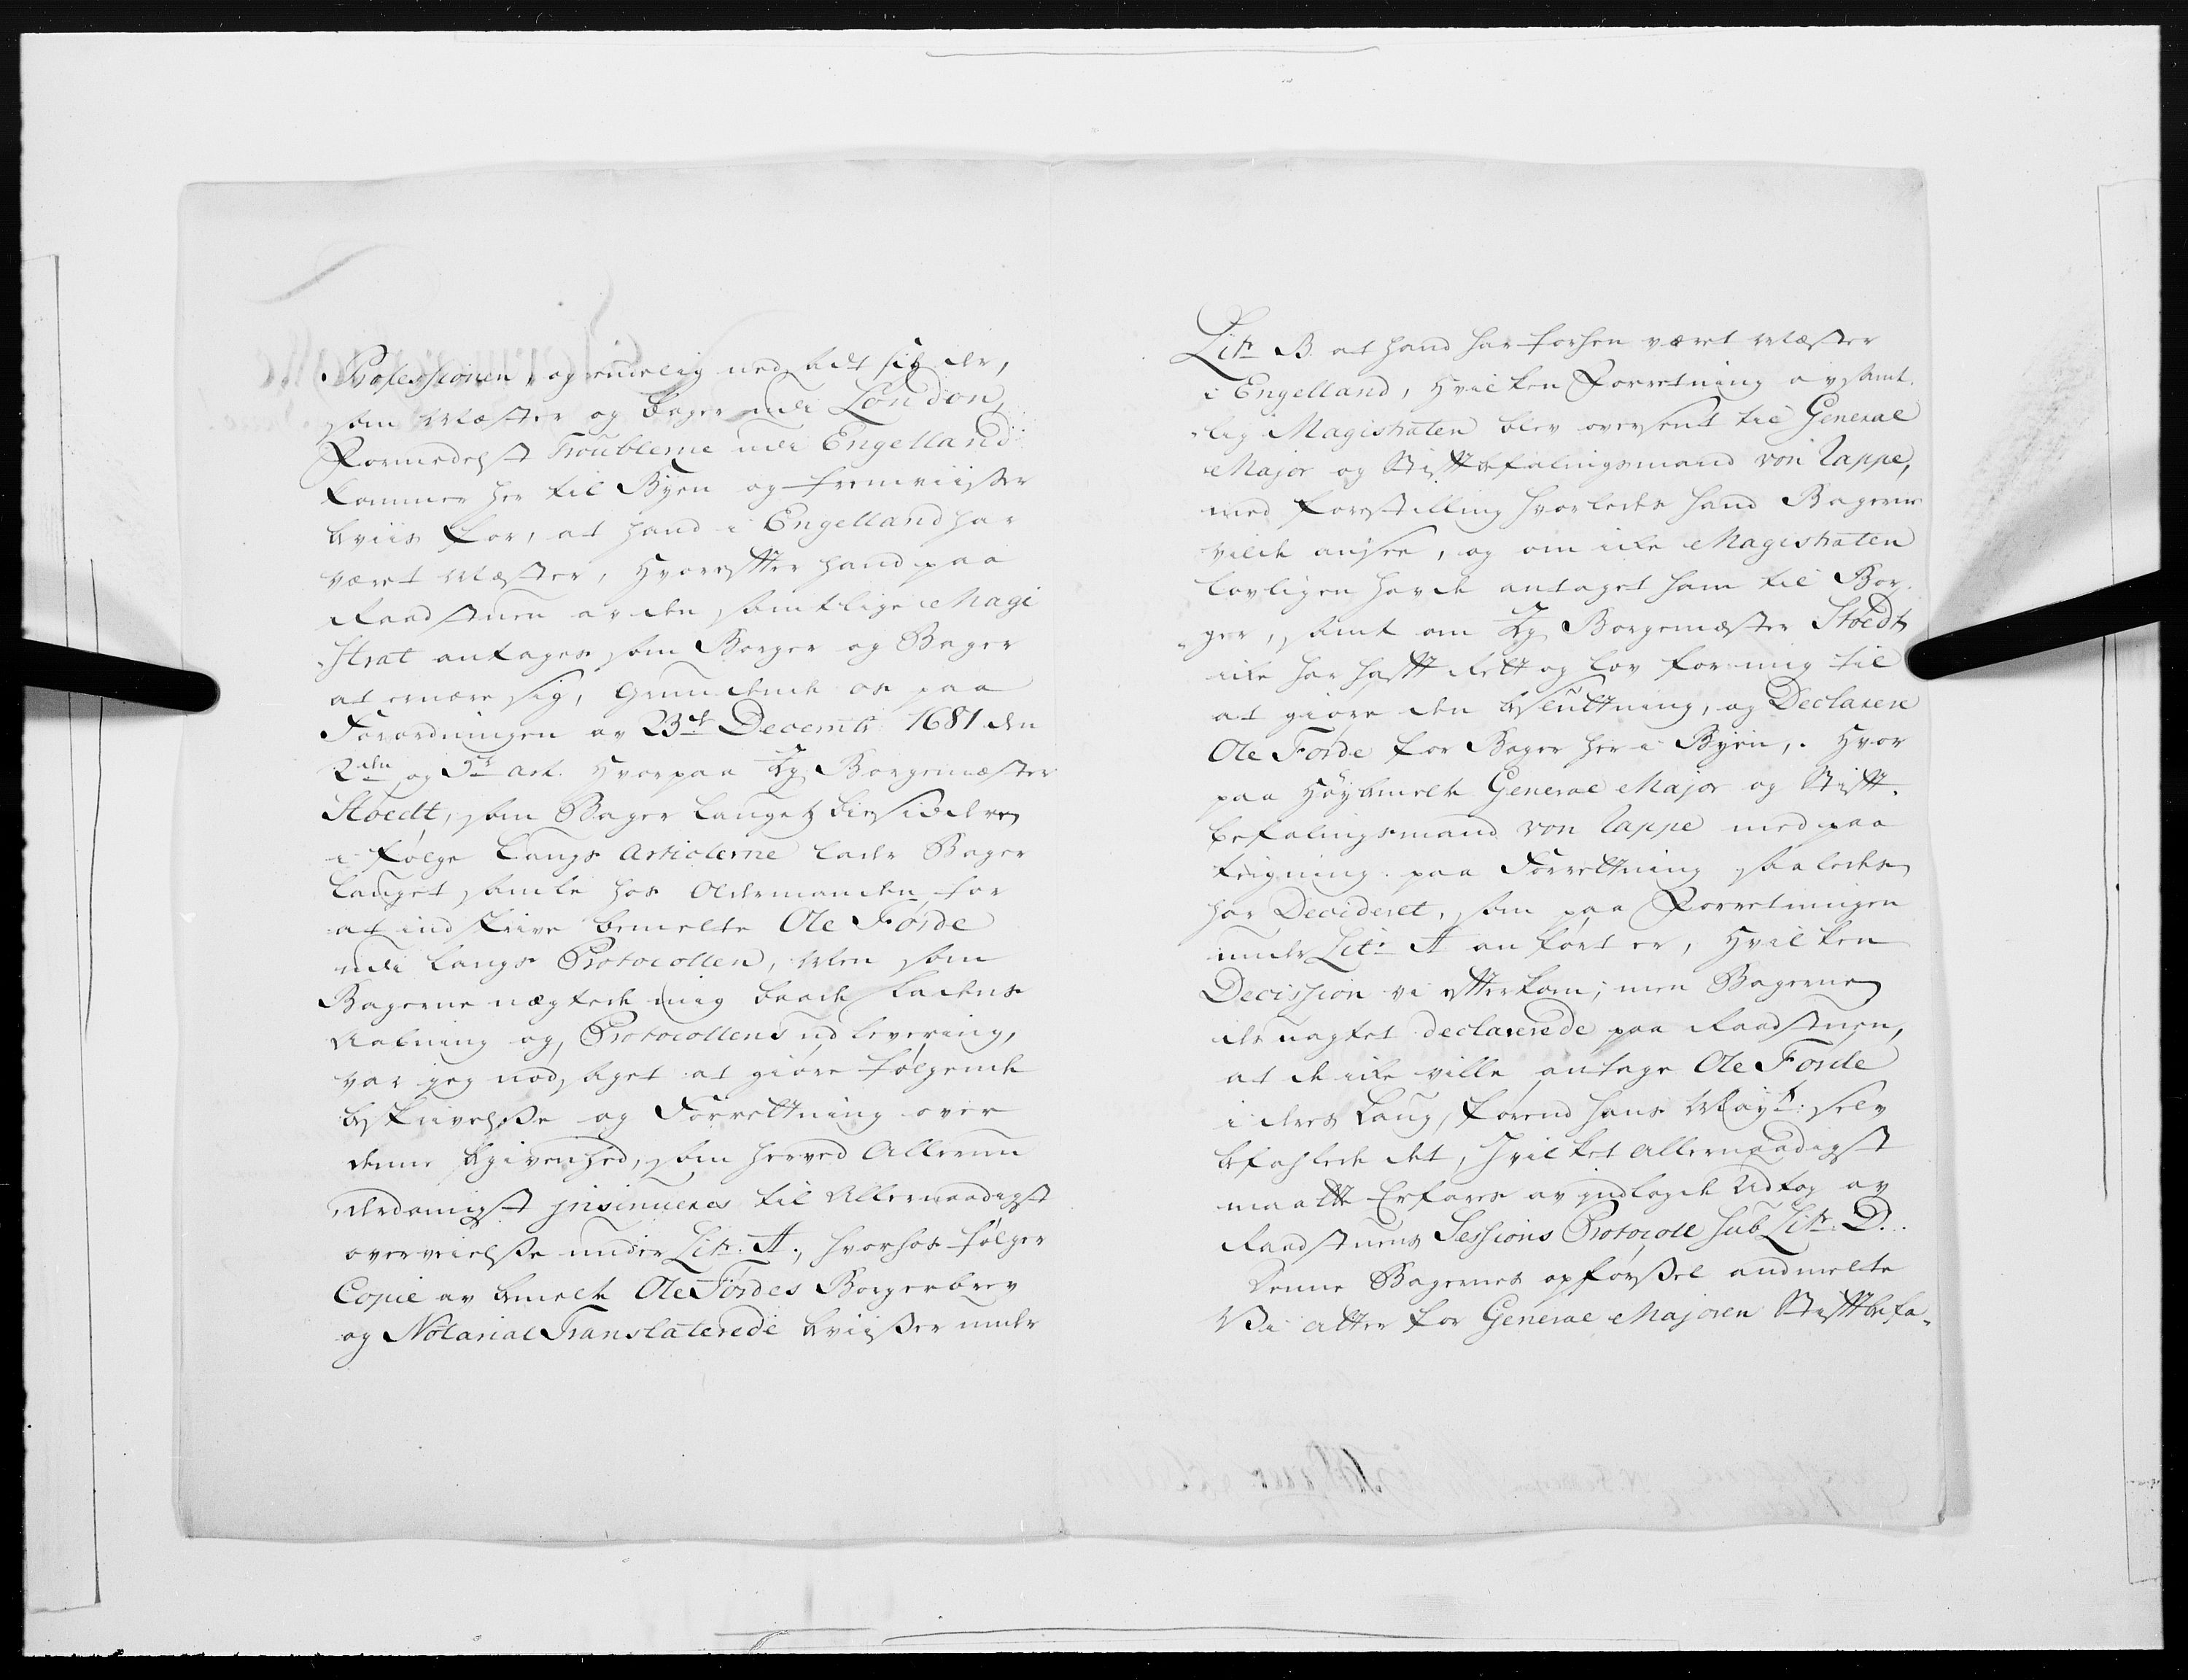 Professionen, og endelig ned sadt sig der,
som Mæster og Bager udi London,
Formedelst Troublerne udi Engelland
kommer her til Byen og fremviiser
beviis for, at hand i Engelland har
været Mæster, Hvoreffter hand paa
Raadstuen av den samtlige Magi
strat antages som Borger og Bager
at ernære sig, Grundende os paa
Forordningen av 23de Decembr 1681 den
2den og 5te art. Hvorpaa Jeg Borgemæster
Stoedt, som Bager Laugets Bisiddere
i følge Laugs Articlerne lader Bager
Lauget samle hos Oldermanden for
at indskrive bemelte Ole Førde
udi Laugs Protocollen, Men som
Bagerne nægtede mig baade Ladens
Aabning og Protocollens udlevering,
var jeg nødsaget at giøre følgende
beskrivelsse og Forrettning over
denne begivenhed, som herved Allerun
derdanigst insinueres til Allernaadigst
overveielsse under Litr. A., hvorhos følger
Copie av bemelte Ole Førdes Borgerbrev
og Notarial Translaterede beviisser under
Litr B. at hand har forhen været Mæster
i Engelland, Hvilken Forretning av samt-
lig Magistraten blev oversent til General
Major og Stifftbefalingsmand von Cappe,
med forestilling hvorledes hand Bagerne
vilde ansee, og om icke Magistraten
lovligen havde antaget ham til Bor-
ger, samt om Jeg Borgemæster Stoedt
icke har hafft Rett og Lov for mig til
at giøre den beslutning, og Declarere
Ole Førde for Bager her i Byen, Hvor
paa Høybemelte General Major og Stifft-
befalingsmand von Cappe med paa
teigning paa Forrettning saaledes
har Decideret, som paa Forretningen
under Litr A anført er, Hvilken
Decission vi effterkom; men Bagerne
der uagtet declarerede paa Raadstuen,
at de icke ville antage Ole Førde
i deres Laug, førend hans Mayt: selv
befahlede det, Hvilket Allernaadigst
maatte Erfares av indlagde Udtog av
Raadstuens Sessions Protocoll sub Litr. D.
Denne Bagernes opførssel andmelte
Vi atter for General Majoren Stifftbefa-